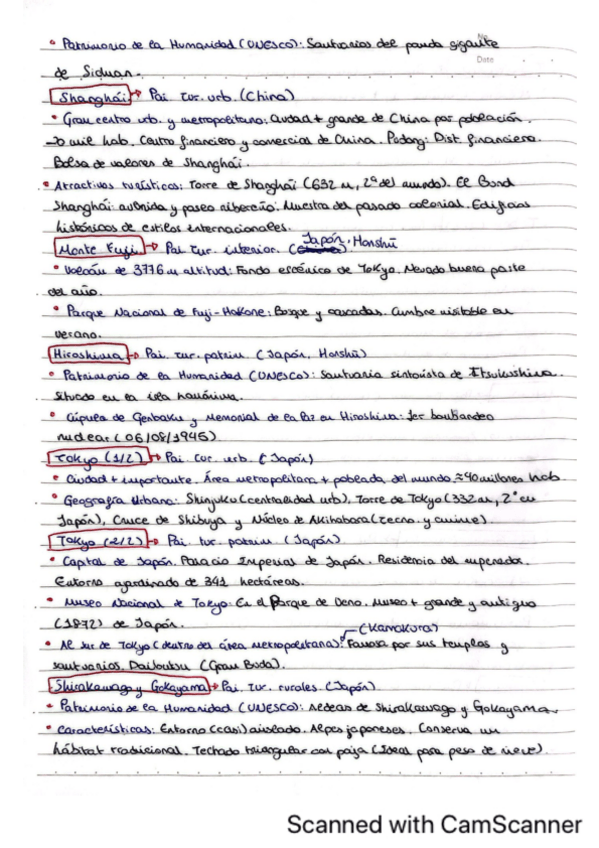 • Patrimonio de la Humanidad (UNESCO): Santuarios del panda gigante
No
Date
de Sichuan.
Shanghái → Pai. tur. urb. (China)
• Gran centro urb. y metropolitano: Ciudad + grande de China por población.
mil hab. Centro financiero y comercial de China. Pudong: Dist. financiero.
Bolsa de valores de Shanghái.
• Atractivos turísticos: Torre de Shanghái (632 m, 2ª del mundo). El Bund
Shanghái: avenida y paseo ribereño. Muestra del pasado colonial. Edificios
históricos de estilos internacionales.
Monte Fuji → Pai. tur. interior. (Japón. Honshū
• Volcán de 3776 m altitud: Fondo escénico de Tokyo. Nevado buena parte
del año.
• Parque Nacional de Fuji-Hakone: Bosque y cascadas. Cumbre visitable en
verano.
Hiroshima → Pai. tur. patrim. (Japón. Honshū)
• Patrimonio de la Humanidad (UNESCO): Santuario sintoísta de Itsukushima.
Situado en la isla homónima.
• Cúpula de Genbaku y Memorial de la Paz en Hiroshima: 1er bombardeo
nuclear (06/08/1945)
Tokyo (1/2) → Pai. tur. urb. (Japón)
• Ciudad + importante. Área metropolitana + poblada del mundo ≈ 40 millones hab.
• Geografía Urbana: Shinjuku (centralidad urb), Torre de Tokyo (332 m, 2ª en
Japón), Cruce de Shibuya y Núcleo de Akihabara (tecno. y anime).
Tokyo (2/2) → Pai. tur. patrim. (Japón)
• Capital de Japón. Palacio Imperial de Japón. Residencia del emperador.
Entorno ajardinado de 341 hectáreas.
• Museo Nacional de Tokyo: En el Parque de Ueno. Museo + grande y antiguo
(1872) de Japón.
(Kamakura)
• Al sur de Tokyo (dentro del área metropolitana): Famosa por sus templos y
santuarios. Daibutsu (Gran Buda).
Shirakawago y Gokayama → Pai. tur. rurales. (Japón)
• Patrimonio de la Humanidad (UNESCO): Aldeas de Shirakawago y Gokayama.
• Características: Entorno (casi) aislado. Alpes japoneses. Conserva un
hábitat tradicional. Techado triangular con paja (Ideal para peso de nieve).
Scanned with CamScanner